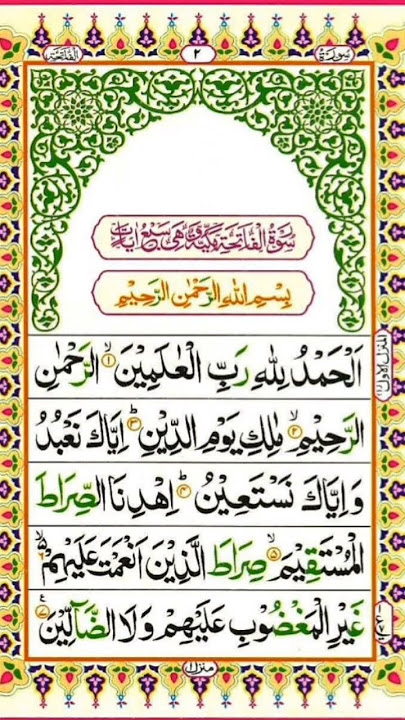 سورة ٢ الفاتحة
سُوْرَةُ الْفَاتِحَةِ مَكِّيَّةٌ وَّهِيَ سَبْعُ اٰيَاتٍ
بِسْمِ اللّٰهِ الرَّحْمٰنِ الرَّحِيْمِ
اَلْحَمْدُ لِلّٰهِ رَبِّ الْعٰلَمِيْنَ ۙ۱ الرَّحْمٰنِ
الرَّحِيْمِ ۙ۲ مٰلِكِ يَوْمِ الدِّيْنِ ۳ اِيَّاكَ نَعْبُدُ
وَاِيَّاكَ نَسْتَعِيْنُ ۴ اِهْدِنَا الصِّرَاطَ
الْمُسْتَقِيْمَ ۙ۵ صِرَاطَ الَّذِيْنَ اَنْعَمْتَ عَلَيْهِمْ ۙ۶
غَيْرِ الْمَغْضُوْبِ عَلَيْهِمْ وَلَا الضَّآلِّيْنَ ۷
المنزل الاول
منزل ۱